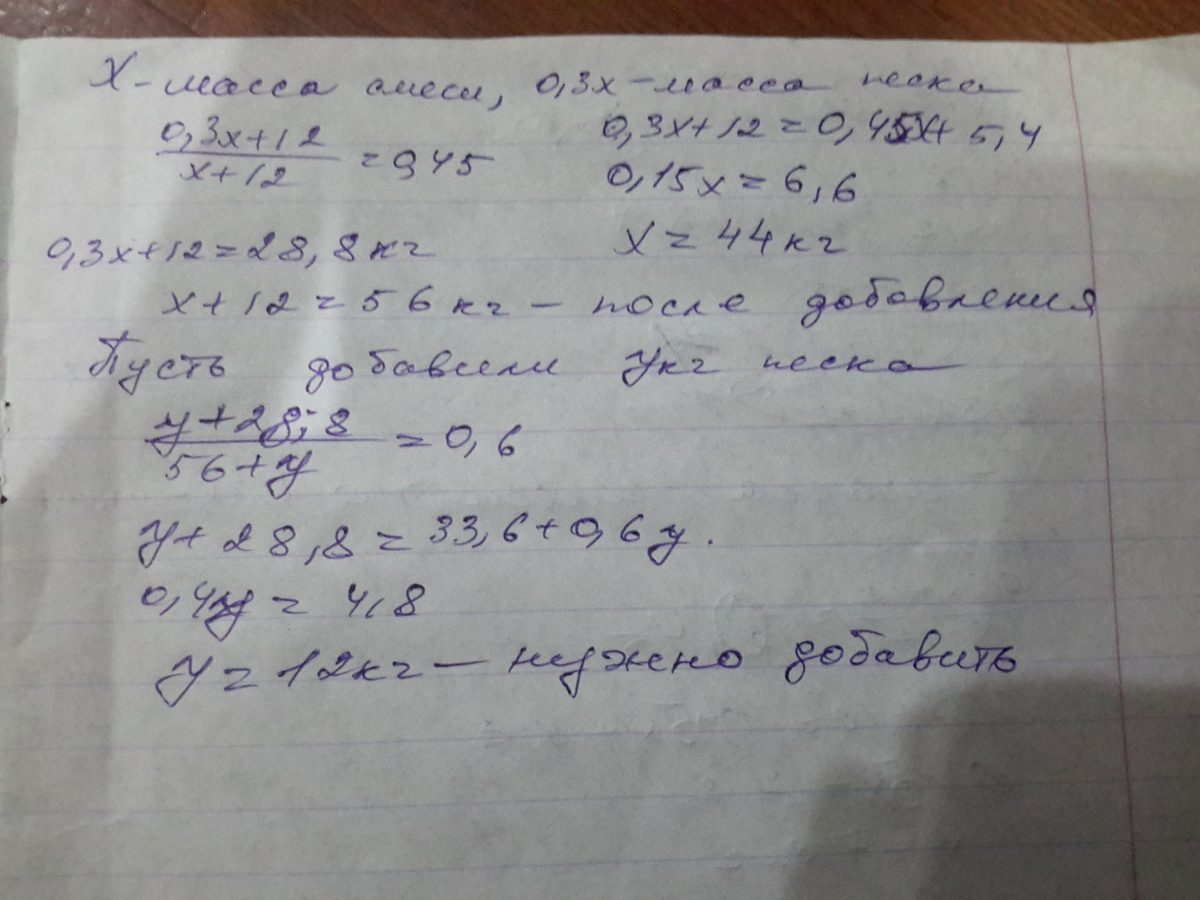 X - масса смеси, 0,3x - масса песка
0,3x+12 / x+12 = 0,45
0,3x+12=0,45x+5,4
0,15x=6,6
x=44кг
0,3x+12=28,8кг
x+12=56кг - после добавления
Пусть добавили y кг песка
y+28,8 / 56+y = 0,6
y+28,8=33,6+0,6y.
0,4y=4,8
y=12кг - нужно добавить